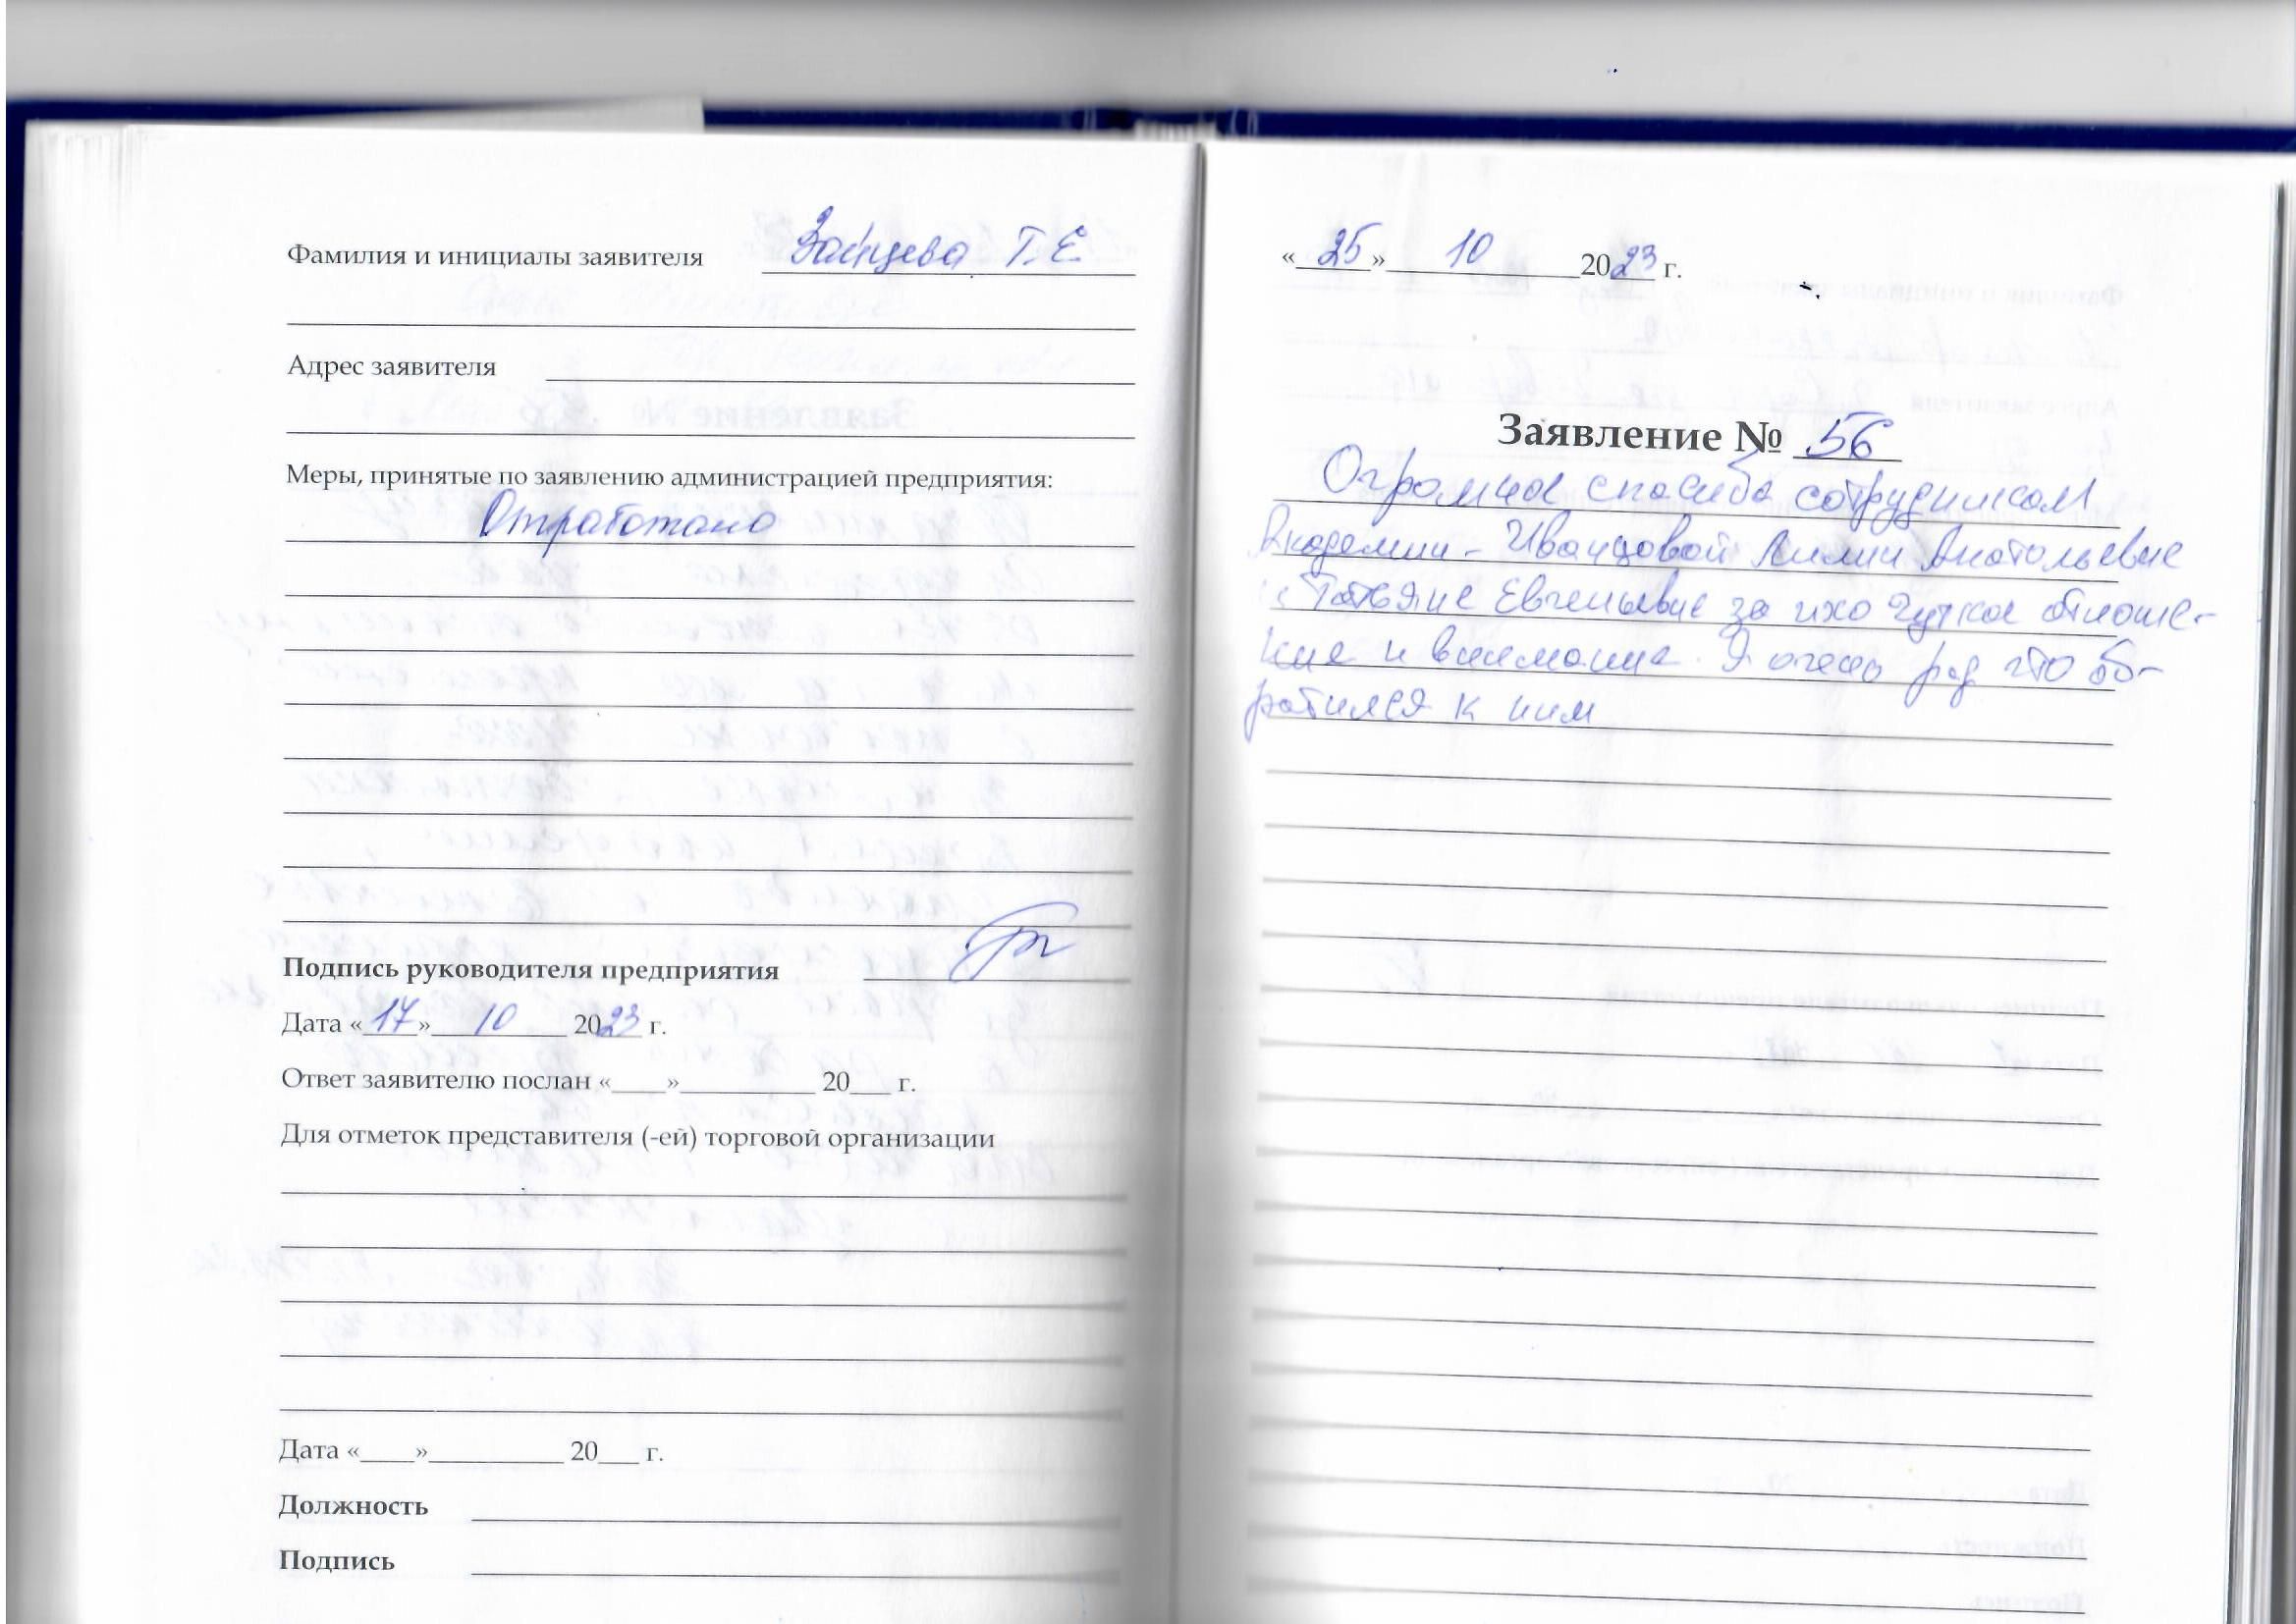 Фамилия и инициалы заявителя Зайцева Т.Е
Адрес заявителя
Меры, принятые по заявлению администрацией предприятия:
Отработано
Подпись руководителя предприятия
Дата «17» 10 2023 г.
Ответ заявителю послан «____»__________ 20___ г.
Для отметок представителя (-ей) торговой организации
Дата «____»__________ 20___ г.
Должность
Подпись
«25» 10 2023 г.
Заявление № 56
Огромное спасибо сотрудникам
Академии - Иванцовой Лилии Анатольевне
и Татьяне Евгеньевне за ихо чуткое отноше-
ние и внимание. Я очень рад что об-
ратился к ним